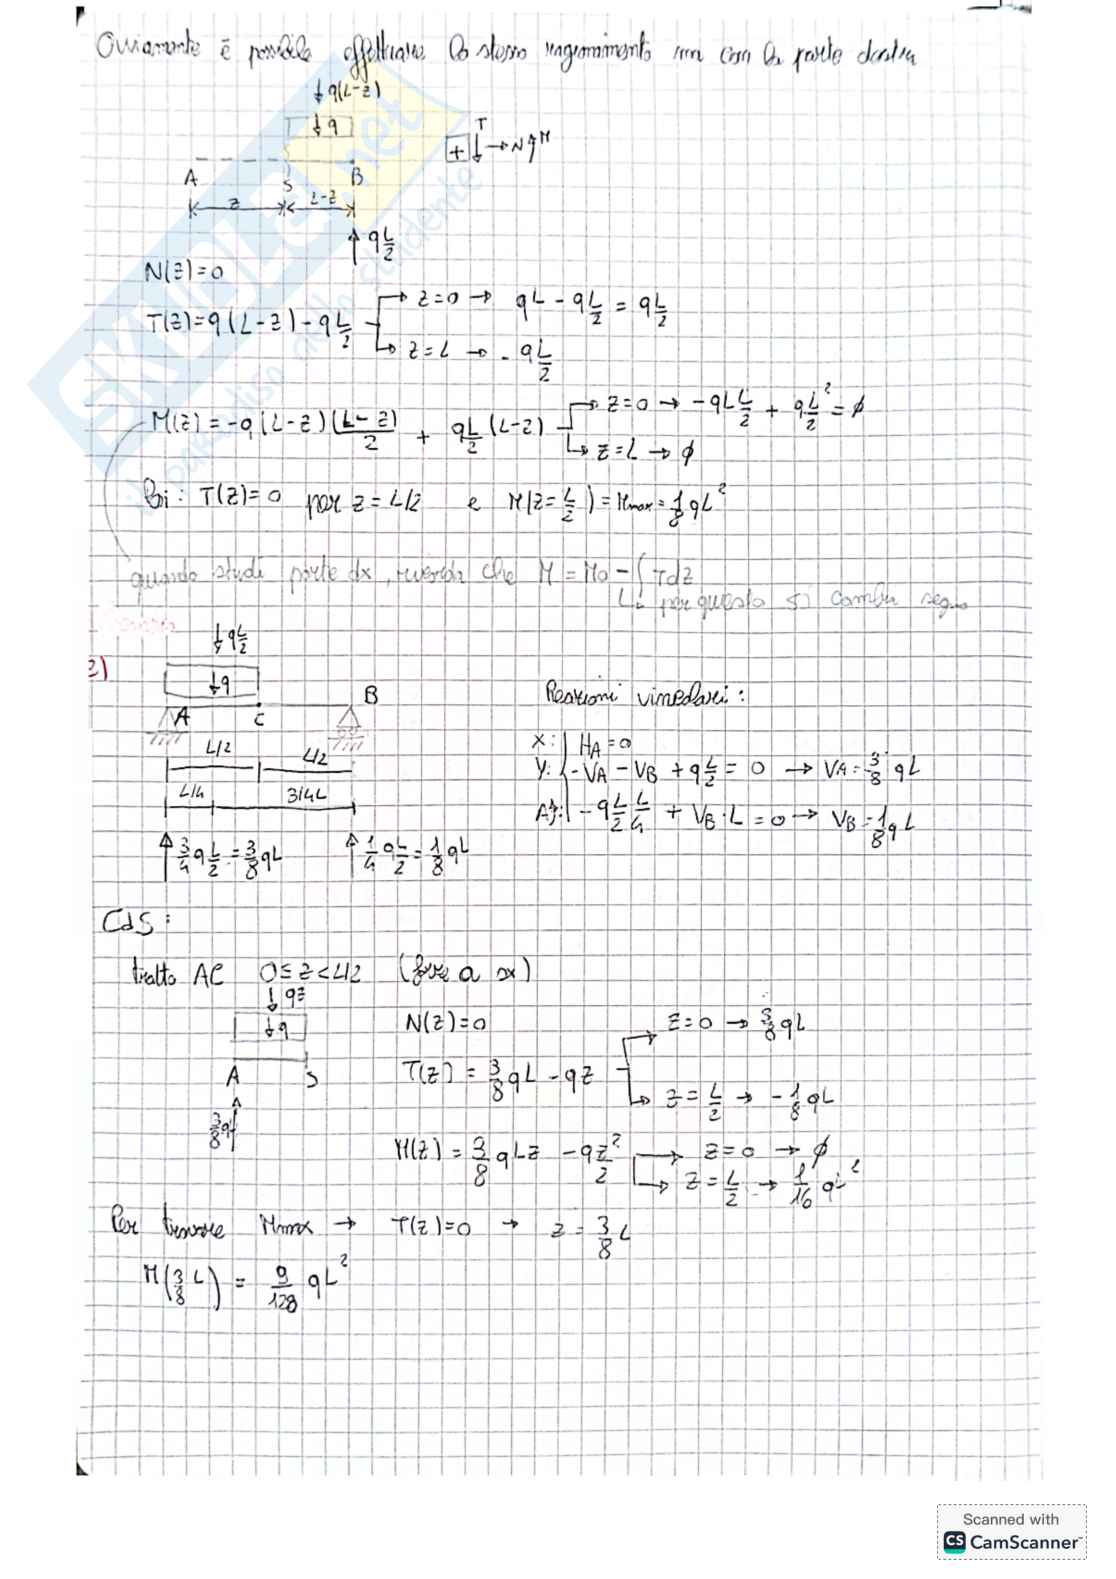 Ovviamente è possibile effettuare lo stesso ragionamento con la parte destra
↓q(L-z)
↓q
A S B
z L-z
+ T N M
↑qL/2
N(z)=0
T(z)=q(L-z)-qL/2 → z=0 → qL-qL/2=qL/2
→ z=L → -qL/2
M(z)=-q(L-z)(L-z)/2 + qL/2(L-z) → z=0 → -qL L/2 + qL²/2=ø
→ z=L → ø
Poi: T(z)=0 per z=L/2 e M(z=L/2)=Mmax=1/8qL²
quando studi parte dx, ricorda che M=Mo-∫Tdz
↳ per questo si cambia segno
↓qL/2
2)
↓q
A C B
L/2 L/2
L/4 3/4L
↑3/4qL/2=3/8qL ↑1/4qL/2=1/8qL
Reazioni vincolari:
X: HA=0
Y: -VA-VB+qL/2=0 → VA=3/8qL
A): -qL/2 L/4+VB·L=0 → VB=1/8qL
CdS:
tratto AC 0≤z<L/2 (forze a sx)
↓qz
↓q
A S
3/8qL
N(z)=0
T(z)=3/8qL-qz → z=0 → 3/8qL
→ z=L/2 → -1/8qL
M(z)=3/8qLz-qz²/2 → z=0 → ø
→ z=L/2 → 1/16qL²
Per trovare Mmax → T(z)=0 → z=3/8L
M(3/8L)=9/128qL²
SKUOLA.net
il paradiso dello studente
Scanned with
CS CamScanner